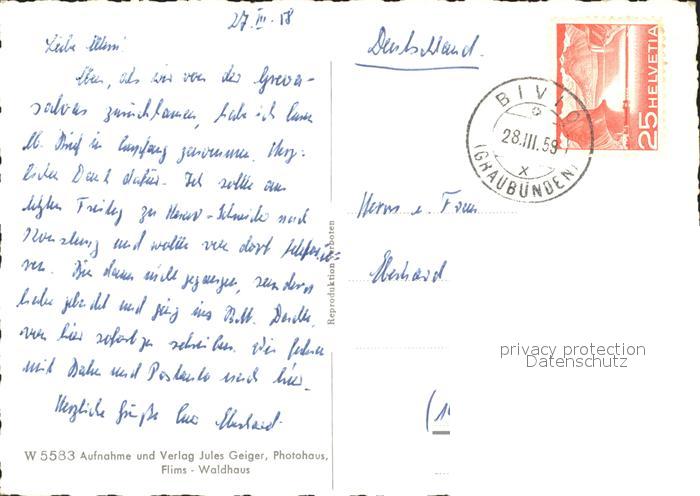 27. III. 58
Liebe Mimi
Eben, als wir von der Greva-
salvas zurückkamen, habe ich Euren
lb. Brief in Empfang genommen. Herz-
lichen Dank dafür. Ich sollte am
letzten Freitag zu nach
und wollte von dort telefonie-
ren. Bin dann nicht gegangen, sondern
habe und ging ins Bett. Dachte,
von hier sofort zu schreiben. Wir fuhren
mit Bahn und Postauto nach hier.
Herzliche Grüße Euer Eberhard.
W 5583 Aufnahme und Verlag Jules Geiger, Photohaus,
Flims - Waldhaus
Reproduktion verboten
Deutschland.
25 HELVETIA
BIVIO
28.III.59
X
(GRAUBÜNDEN)
Herrn u. Frau
Eberhard
privacy protection
Datenschutz